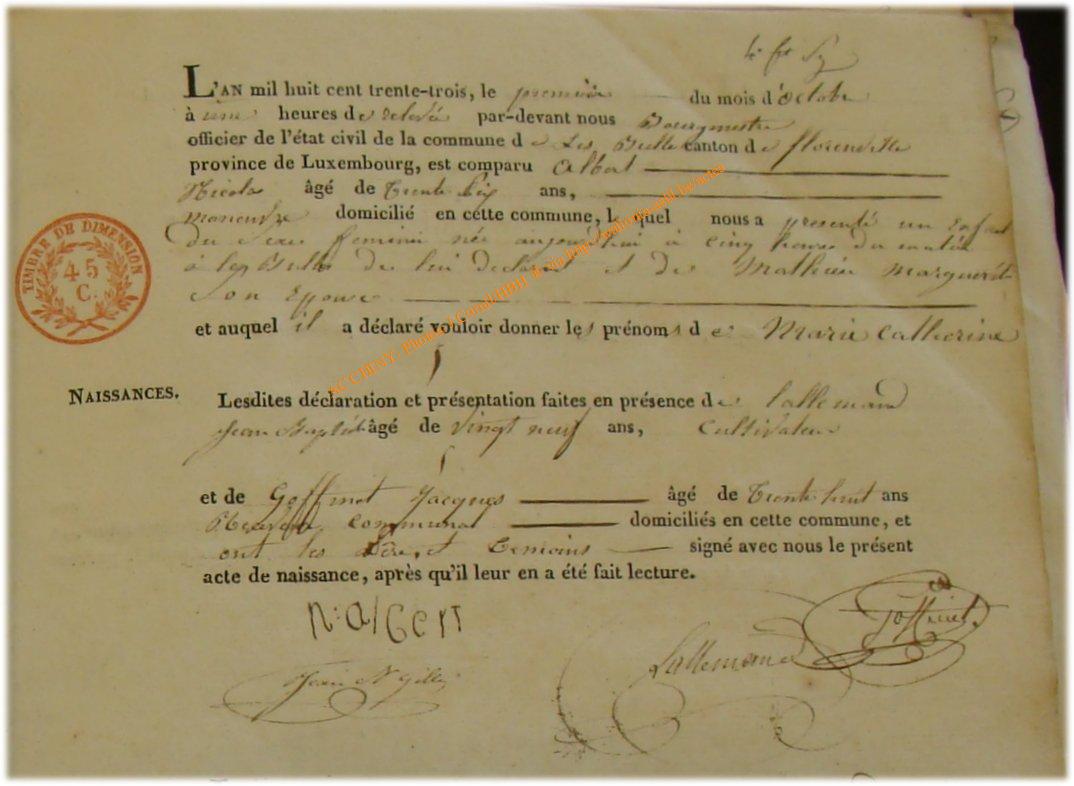 L'AN mil huit cent trente-trois, le premier du mois d'Octobre
à une heures de relevée par-devant nous Bourgmestre
officier de l'état civil de la commune de Les Bulles canton de florenville
province de Luxembourg, est comparu Albert
Nicolas âgé de Trente Six ans,
domicilié en cette commune, lequel nous a presenté un Enfant
du Sexe feminin née aujourd'hui à Cinq heures du matin
à les Bulles de lui declarant et de Mathieu Marguerite
Son Epouse
et auquel il a déclaré vouloir donner les prénoms de Marie Catherine
NAISSANCES.
Lesdites déclaration et présentation faites en présence de Lallemand
Jean Baptiste âgé de Vingt neuf ans, Cultivateur
et de Goffinet Jacques âgé de Trente huit ans
communal domiciliés en cette commune, et
ont les Père et Temoins signé avec nous le présent
acte de naissance, après qu'il leur en a été fait lecture.
N:albert
Goffinet
Lallemand
Jean N Gille
TIMBRE DE DIMENSION
45
C.